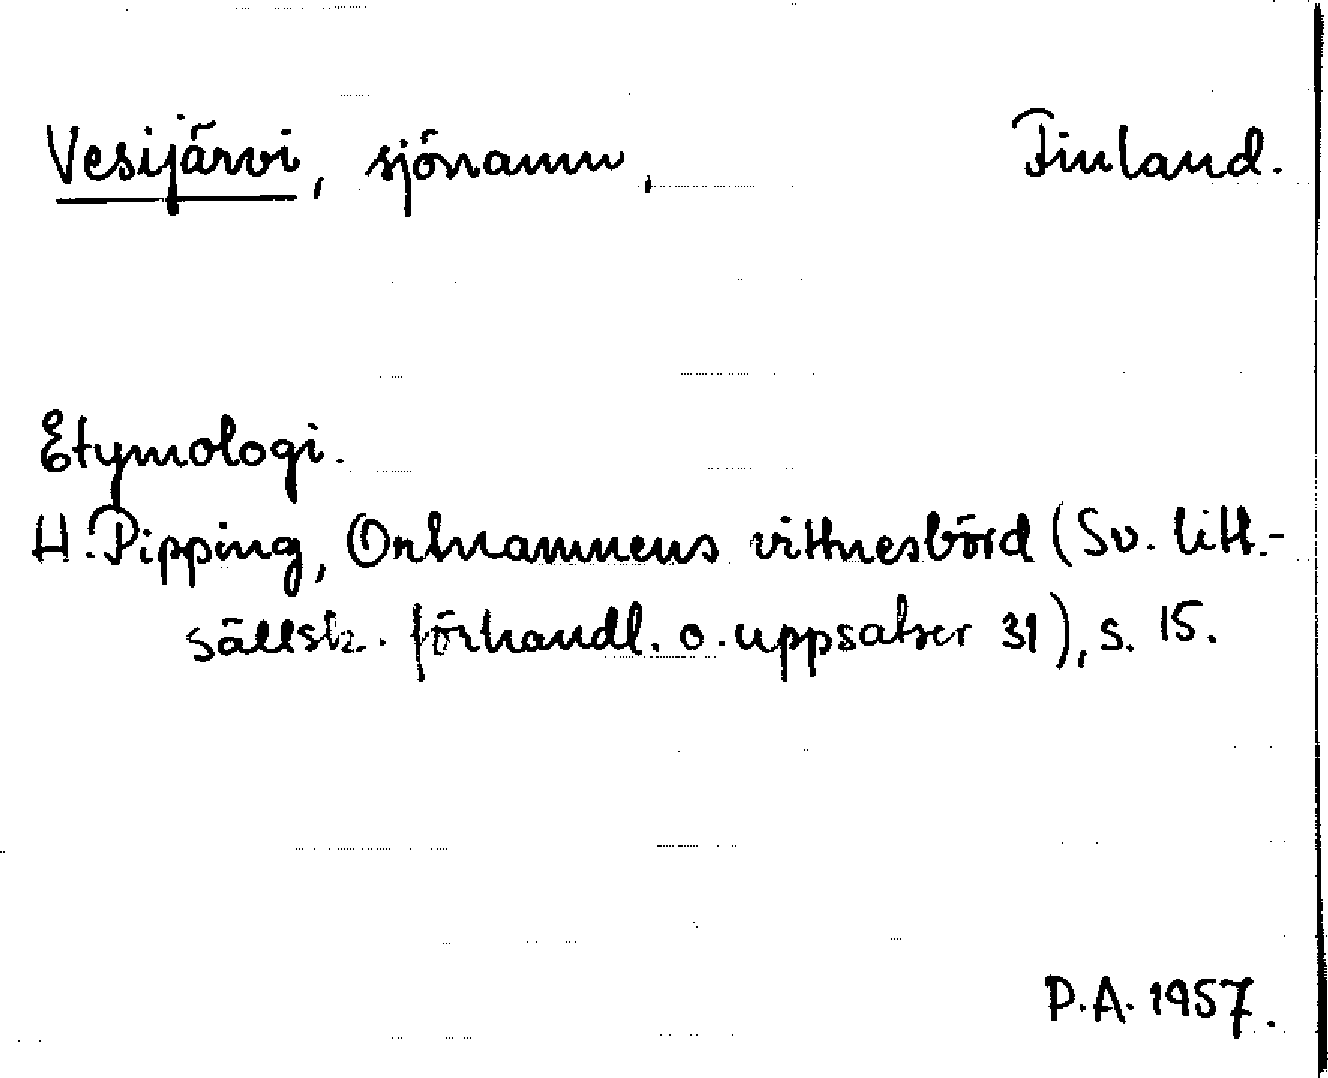 Vesijärvi, sjönamn, Finland.
Etymologi.
H. Pipping, Ortnamnens vittnesbörd (Sv. litt.-
sällsk. förhandl. o. uppsatser 31), s. 15.
P.A. 1957.